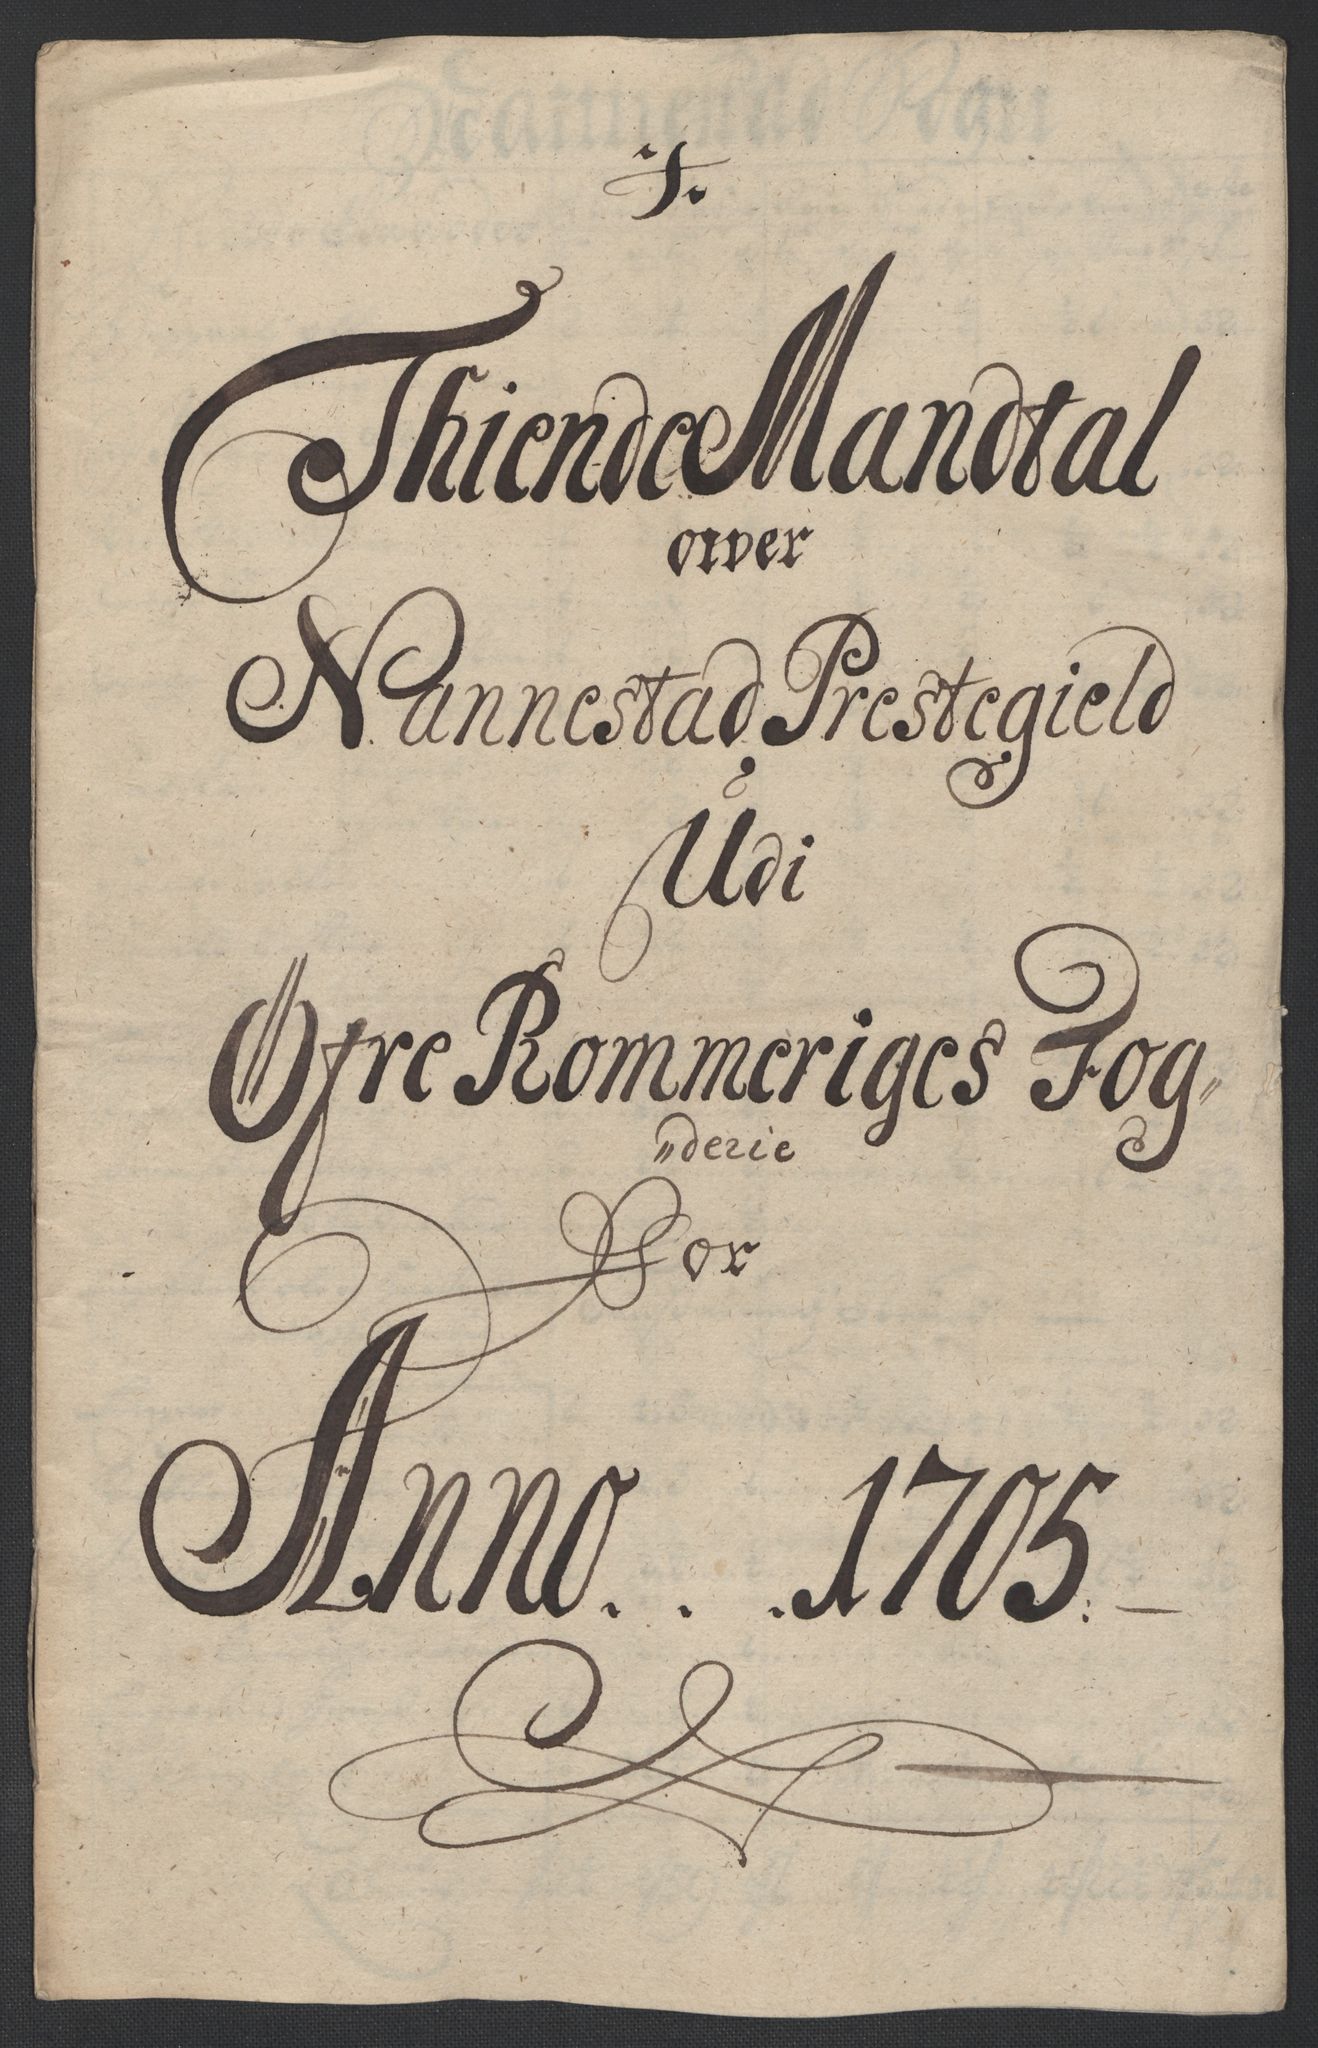 Thiende Mandtal
over
Nannestad Prestegield
Udi
Øfre Rommeriges Fog„
„derie
For
Anno . . . 1705. —